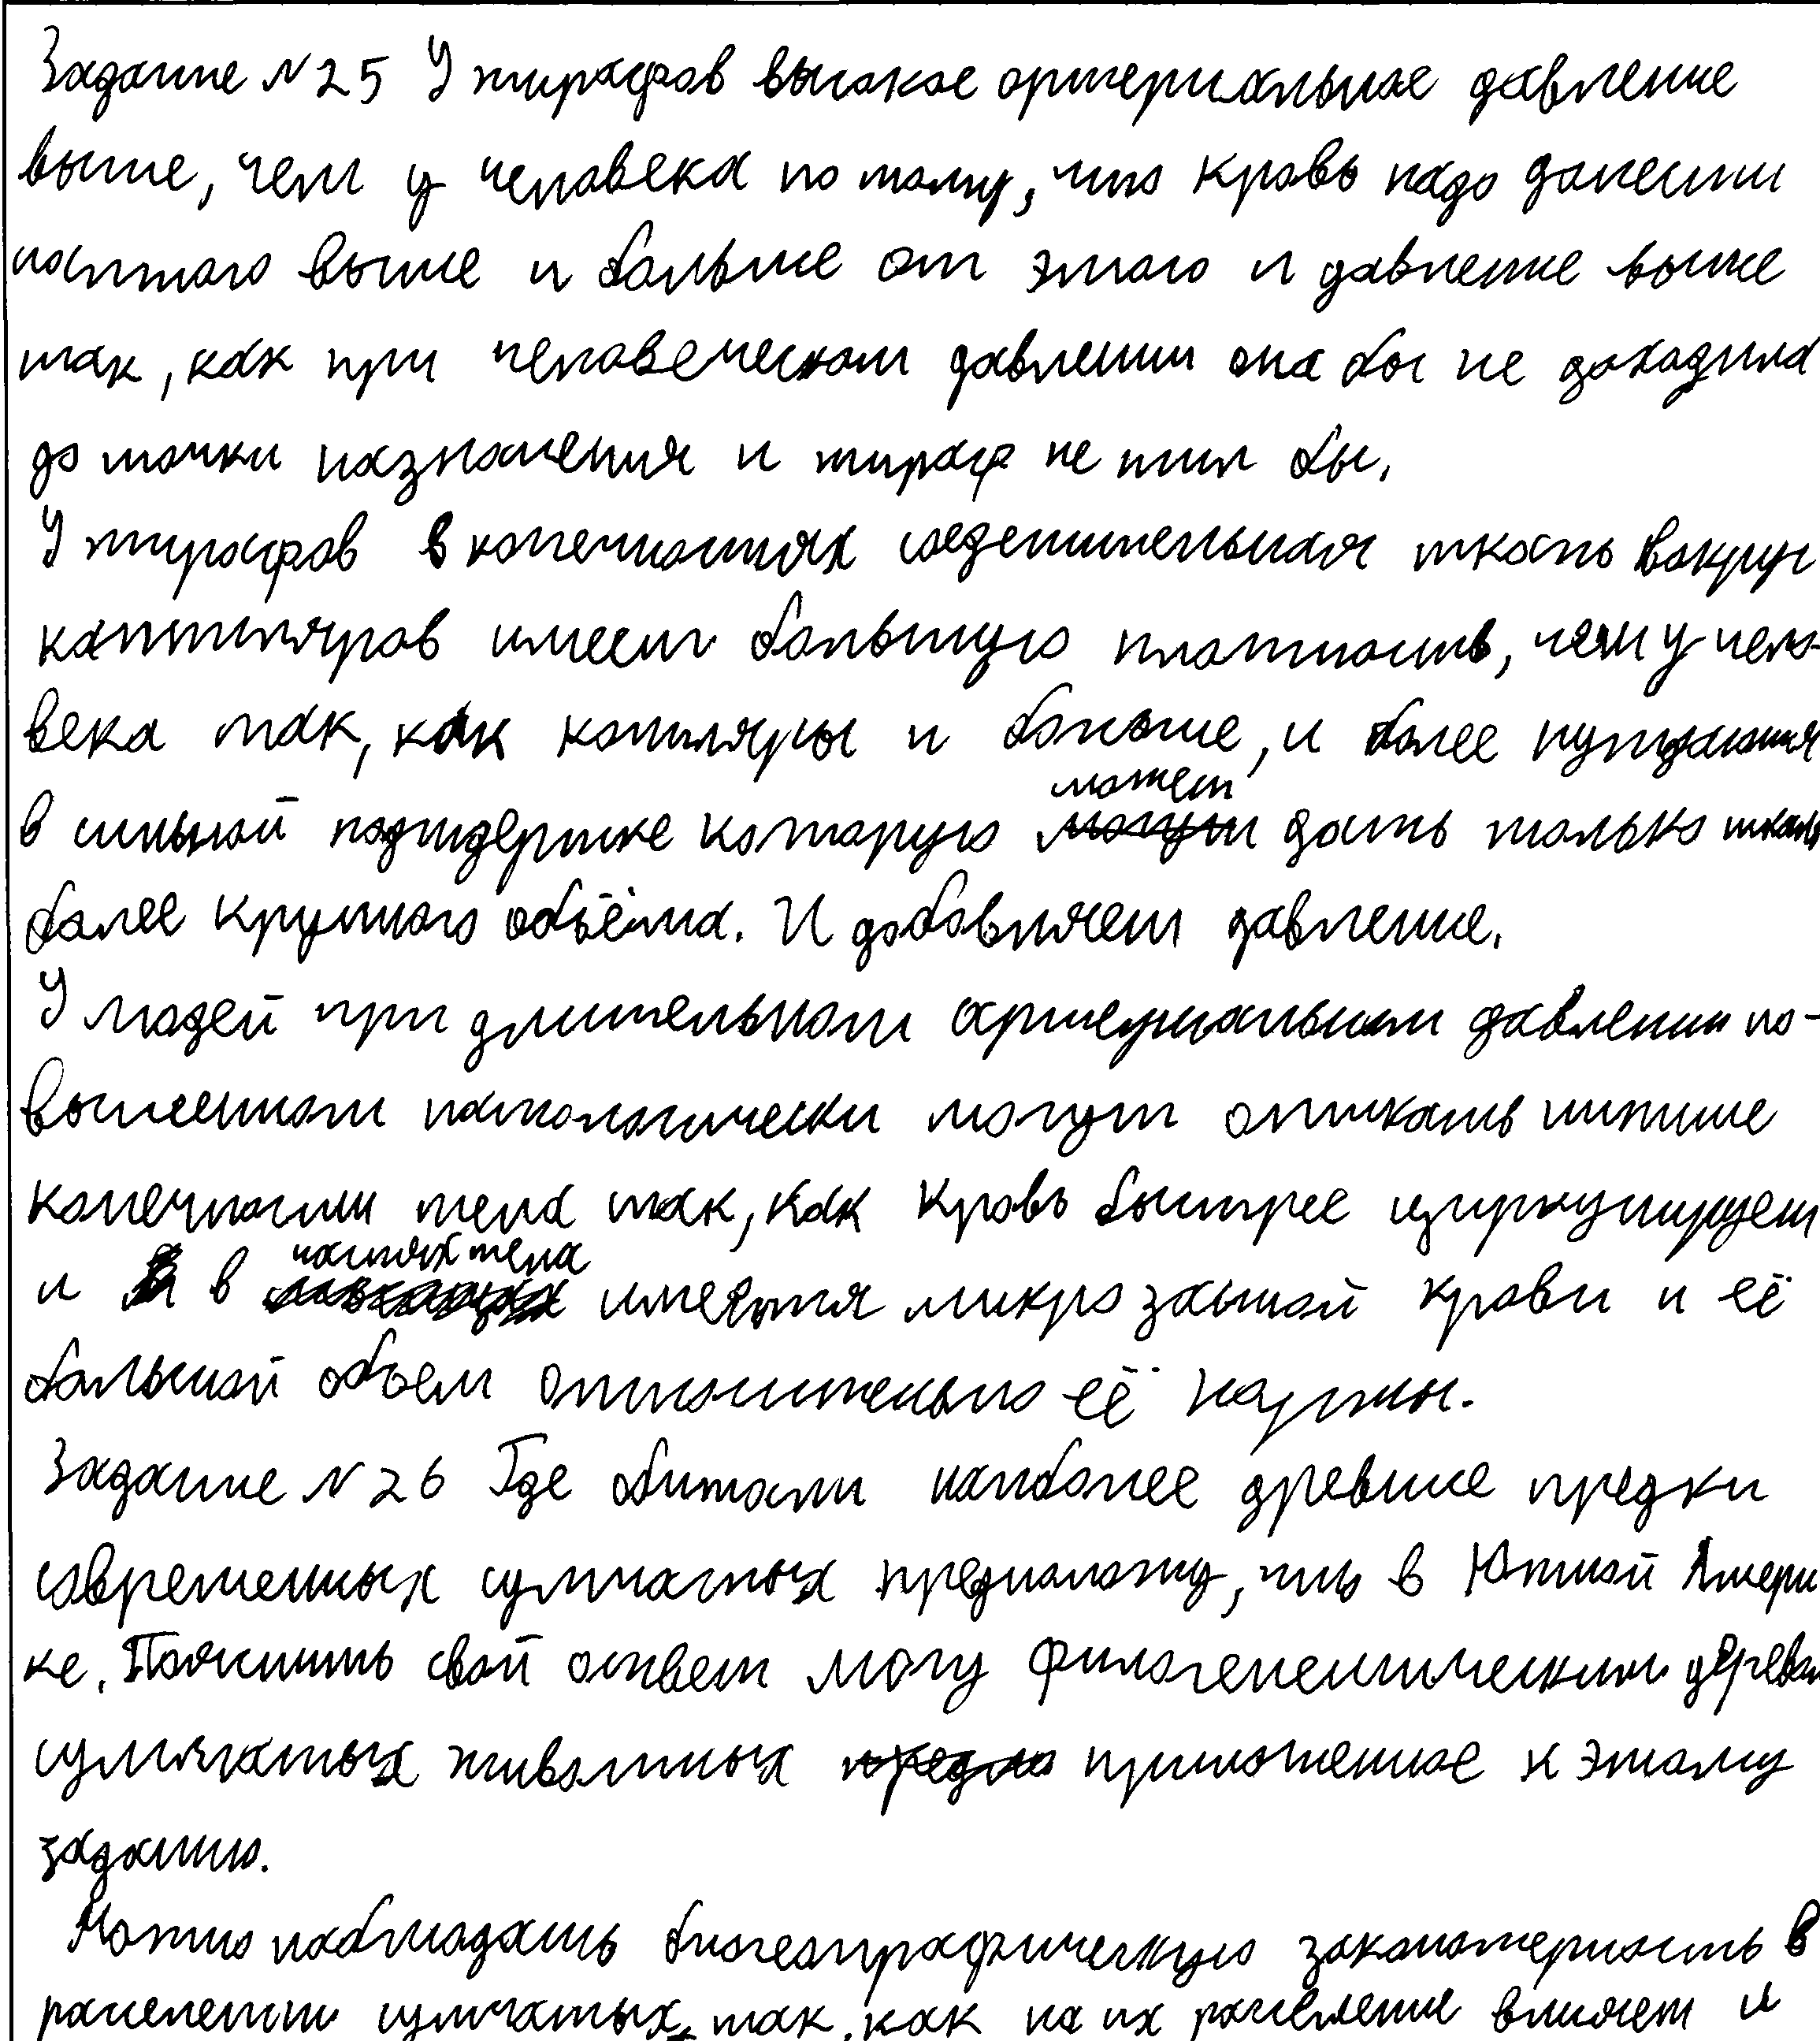 Задание №25 У жирафов высокое ортериальное давление
выше, чем у человека по тому, что кровь надо донести
намного выше и больше от этого и давление выше
так, как при человеческом давлении она бы не доходила
до точки назначения и жираф не жил бы.
У жирафов в конечностях соеденительная ткань вокруг
капилляров имеет большую плотность, чем у чело-
века так, как капиляры и больше, и более нуждаются
в сильной поддержке которую может дать только ткань
более крупного объёма. И добовляет давление.
У людей при длительном артериальном давлении по-
вышенном патологически могут отикать нижние
конечности тела так, как кровь быстрее циркулирует
и в частях тела имеются микро застой крови и её
большой объем относительно её нормы.
Задание №26 Где обитали наиболее древние предки
современных сумчатых предположу, что в Южной Амери
ке. Пояснить свой ответ могу филогенетическим древом
сумчатых животных приложенное к этому
заданию.
Можно наблюдать биогеографическую закономерность в
расселении сумчатых, так, как на их расселение влияет и